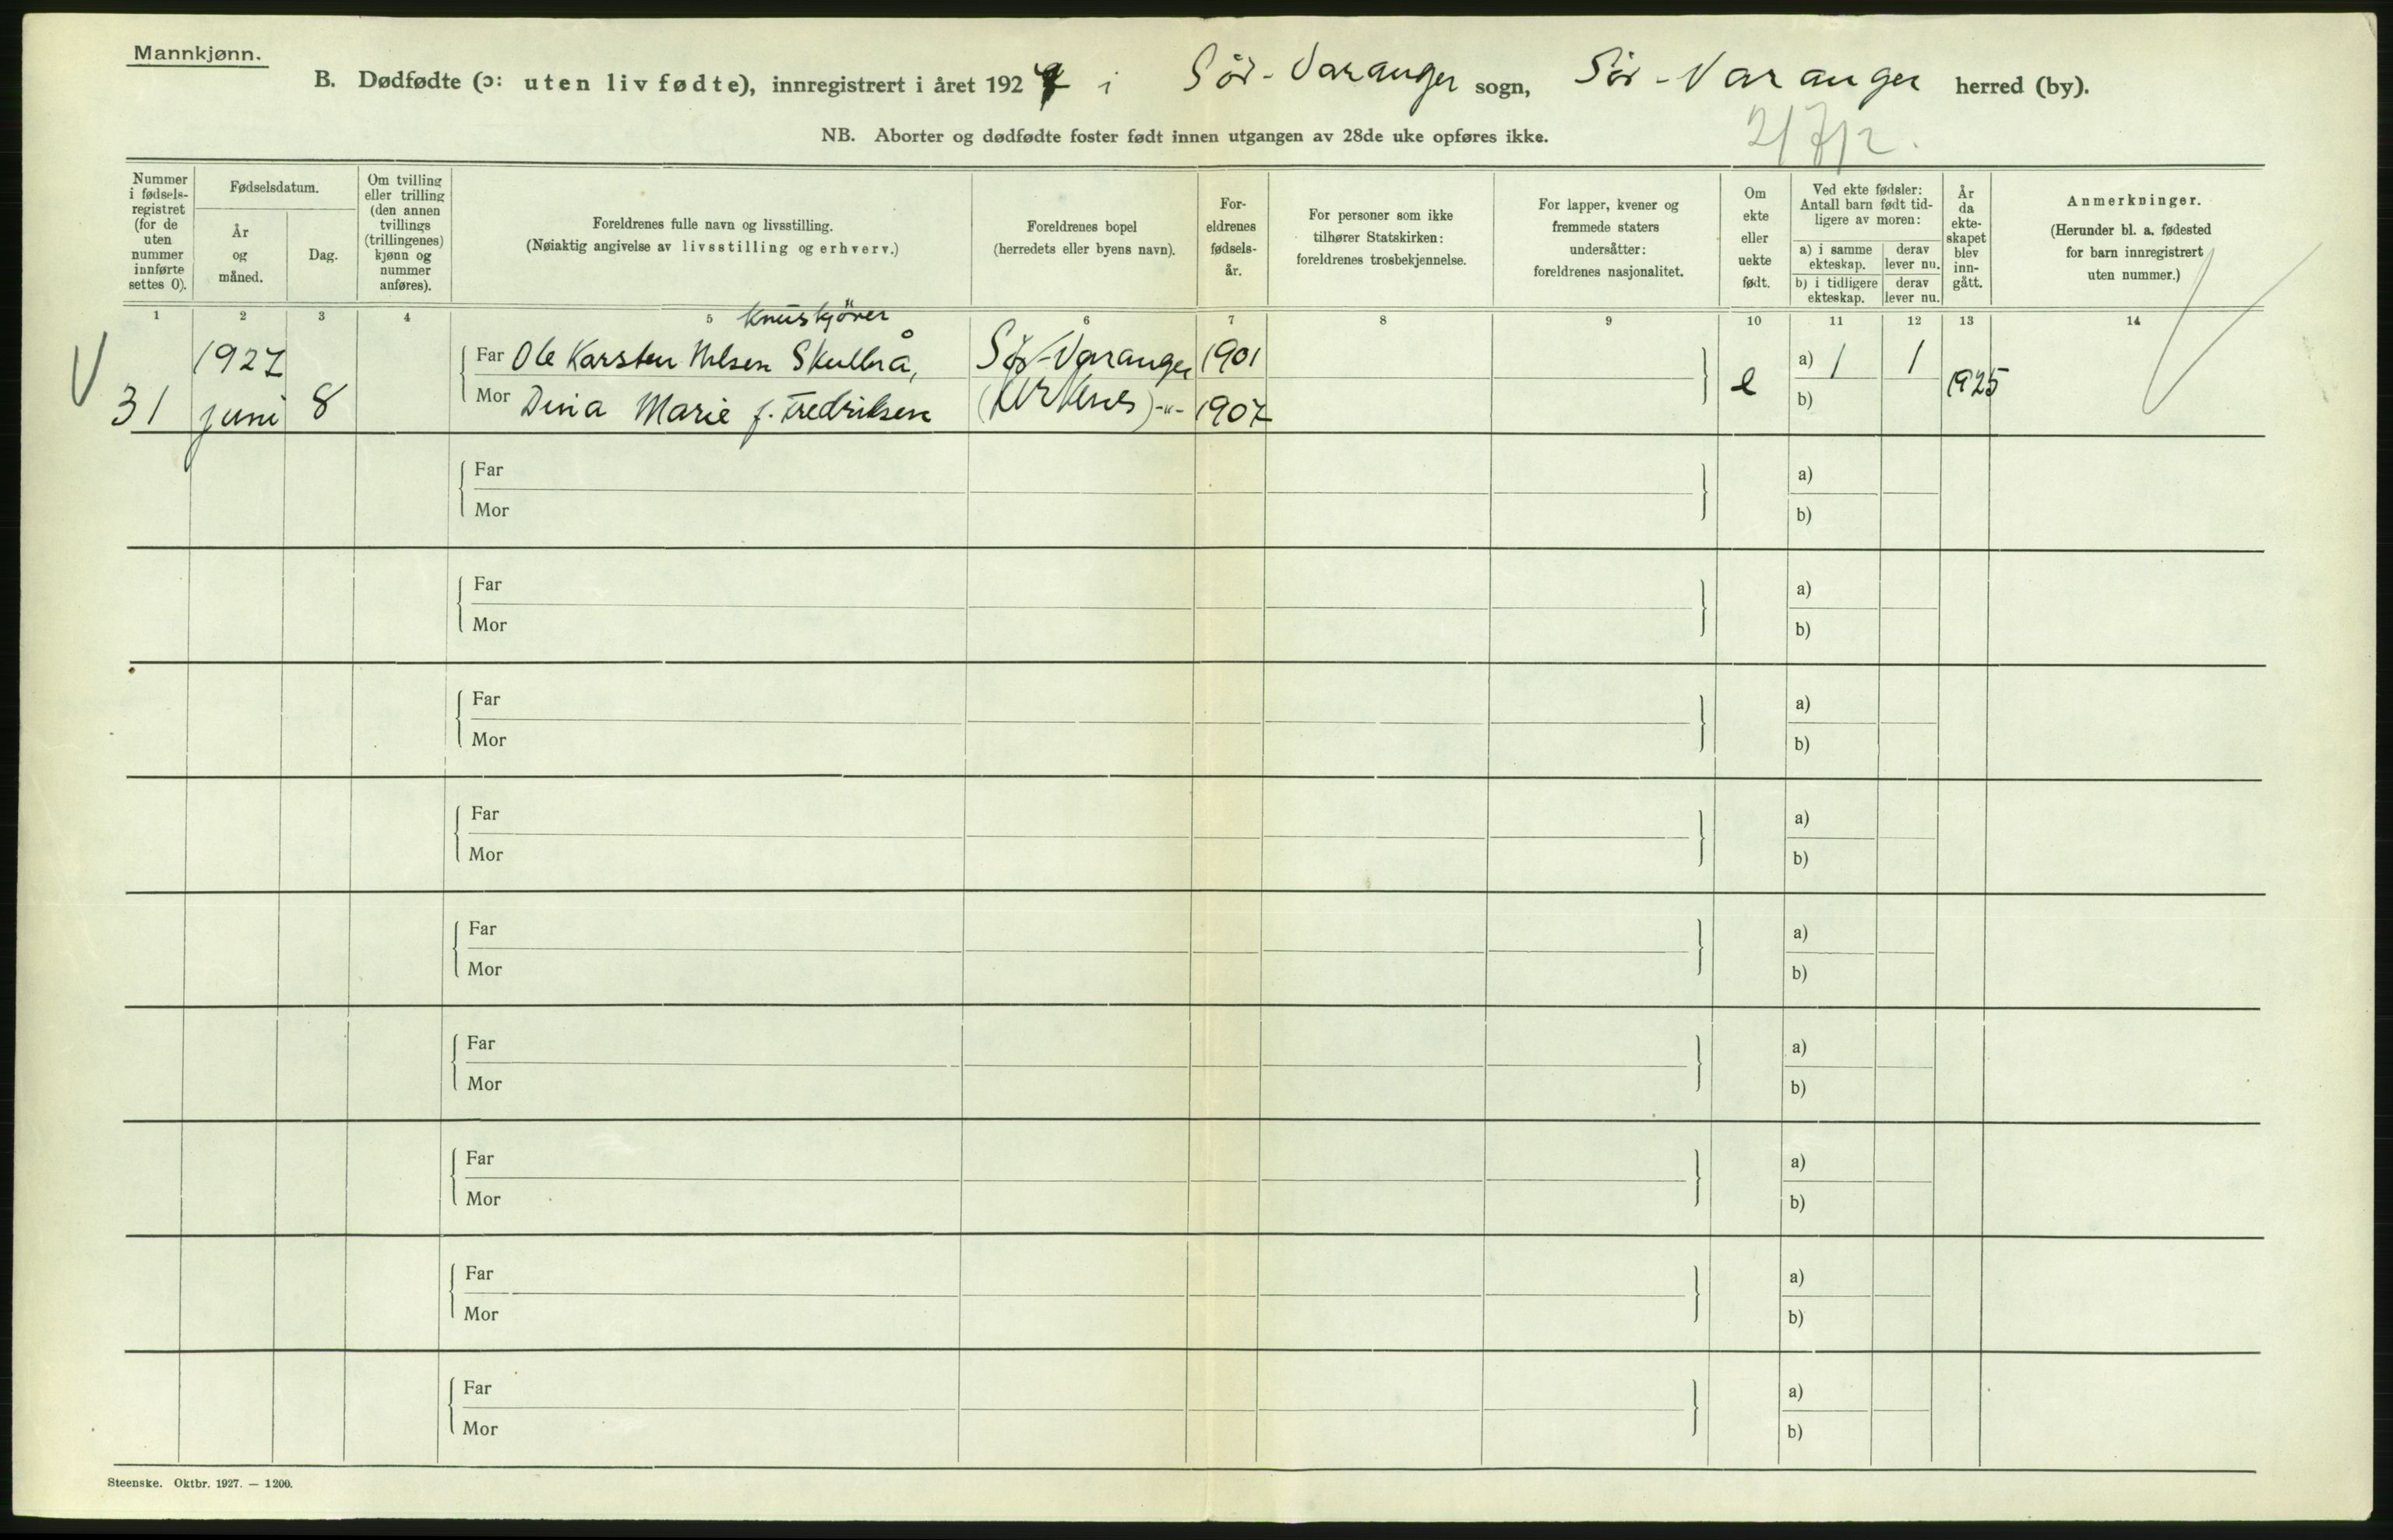 Mannkjønn.
B. Dødfødte (ɔ: uten liv fødte), innregistrert i året 1927 i Sør-Varanger sogn, Sør-Varanger herred (by).
NB. Aborter og dødfødte foster født innen utgangen av 28de uke opføres ikke.
Nummer i fødsels-registret (for de uten nummer innførte settes 0).
Fødselsdatum.
År og måned.
Dag.
Om tvilling eller trilling (den annen tvillings (trillingenes) kjønn og nummer anføres).
Foreldrenes fulle navn og livsstilling.
(Nøiaktig angivelse av livsstilling og erhverv.)
Foreldrenes bopel
(herredets eller byens navn).
For-eldrenes fødsels-år.
For personer som ikke tilhører Statskirken: foreldrenes trosbekjennelse.
For lapper, kvener og fremmede staters undersåtter: foreldrenes nasjonalitet.
Om ekte eller uekte født.
Ved ekte fødsler: Antall barn født tid-ligere av moren:
a) i samme ekteskap.
derav lever nu.
b) i tidligere ekteskap.
derav lever nu.
År da ekte-skapet blev inn-gått.
Anmerkninger.
(Herunder bl. a. fødested for barn innregistrert uten nummer.)
1 2 3 4 5 6 7 8 9 10 11 12 13 14
31 1927 juni 8
Far Ole Karsten Nilsen Skulbrå, Sør-Varanger 1901
Mor Dina Marie f. Fredriksen (Kirkenes) -"- 1907
e a) 1 1 1925
b)
Far a)
Mor b)
Far a)
Mor b)
Far a)
Mor b)
Far a)
Mor b)
Far a)
Mor b)
Far a)
Mor b)
Far a)
Mor b)
Far a)
Mor b)
Far a)
Mor b)
Steenske. Oktbr. 1927. — 1200.